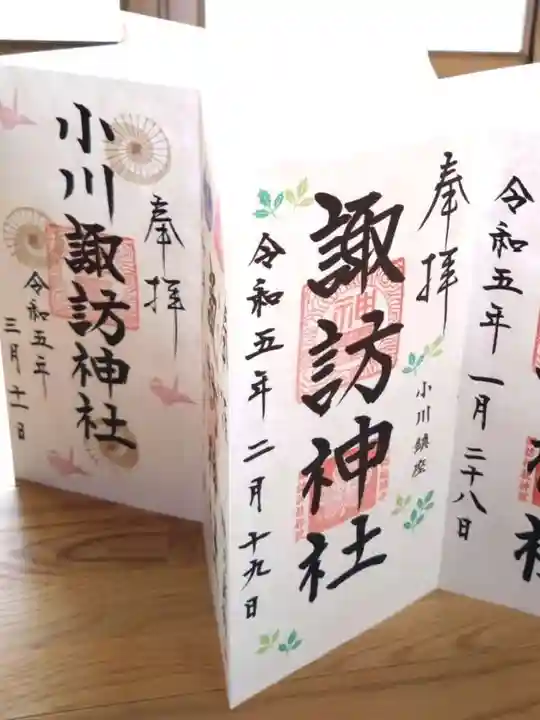 奉拝
小川諏訪神社
令和五年
三月十一日
奉拝
小川鎮座
諏訪神社
令和五年二月十九日
令和五年一月二十八日